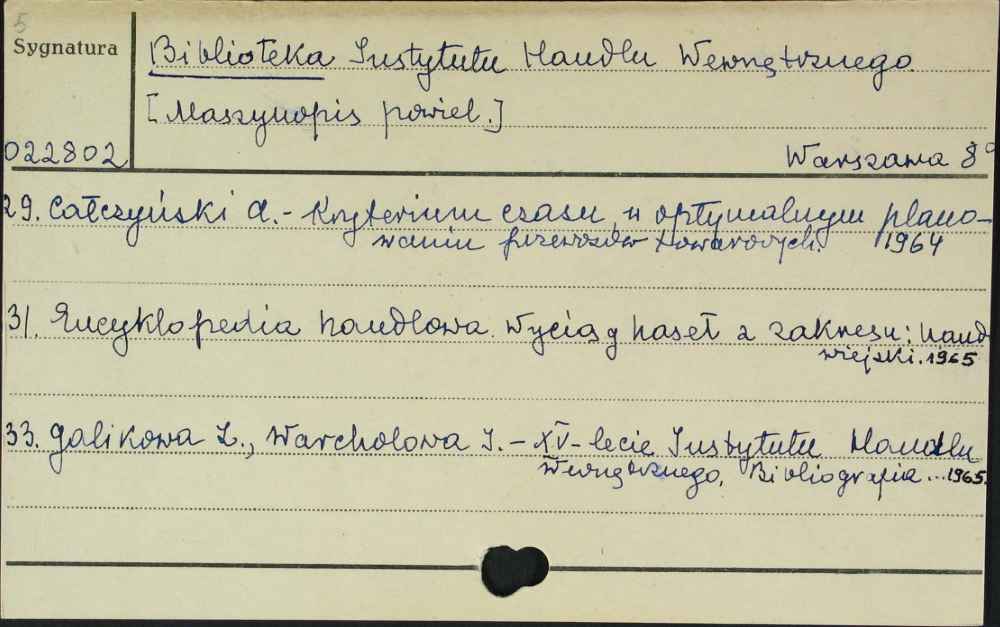 5
Sygnatura
Biblioteka Instytutu Handlu Wewnętrznego
[Maszynopis powiel.]
022802
Warszawa 8°
29. Całczyński A. - Kryterium czasu w optymalnym plano-
waniu przewozów towarowych. 1964
31. Encyklopedia handlowa. Wyciąg haseł z zakresu: hand
wiejski. 1965
33. Galikowa Z., Warchołowa I. - XV-lecie Instytutu Handlu
Wewnętrznego. Bibliografia ... 1965.